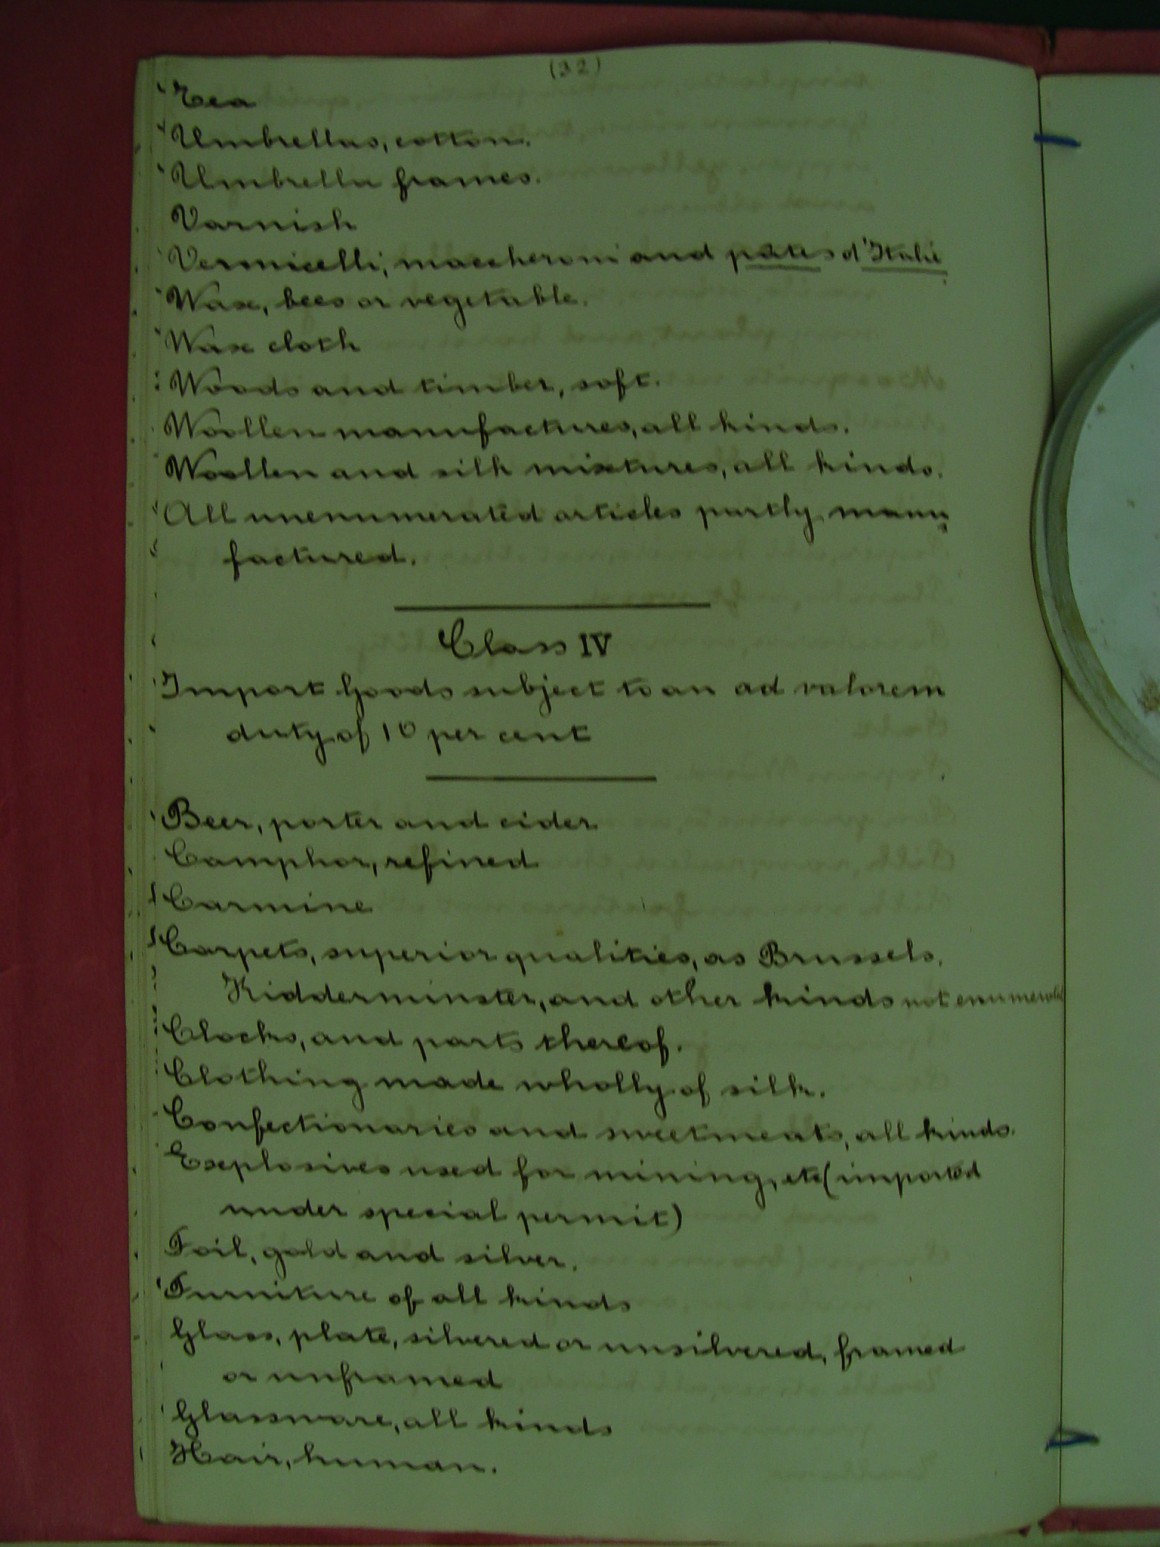 (32)
Tea
Umbrellas, cotton.
Umbrella frames.
Varnish
Vermicelli, maccheroni and pates d'Italie
Wax, bees or vegetable.
Wax cloth
Woods and timber, soft.
Woollen manufactures, all kinds.
Woollen and silk mixtures, all kinds.
All unenumerated articles partly manu
factured.
Class IV
Import Goods subject to an ad valorem
duty of 10 per cent
Beer, porter and cider
Camphor, refined
Carmine
Carpets, superior qualities, as Brussels,
Kidderminster, and other kinds not enumerated
Clocks, and parts thereof.
Clothing made wholly of silk.
Confectionaries and sweetmeats, all kinds.
Explosives used for mining, etc (imported
under special permit)
Foil, gold and silver.
Furniture of all kinds
Glass, plate, silvered or unsilvered, framed
or unframed
Glassware, all kinds
Hair, human.